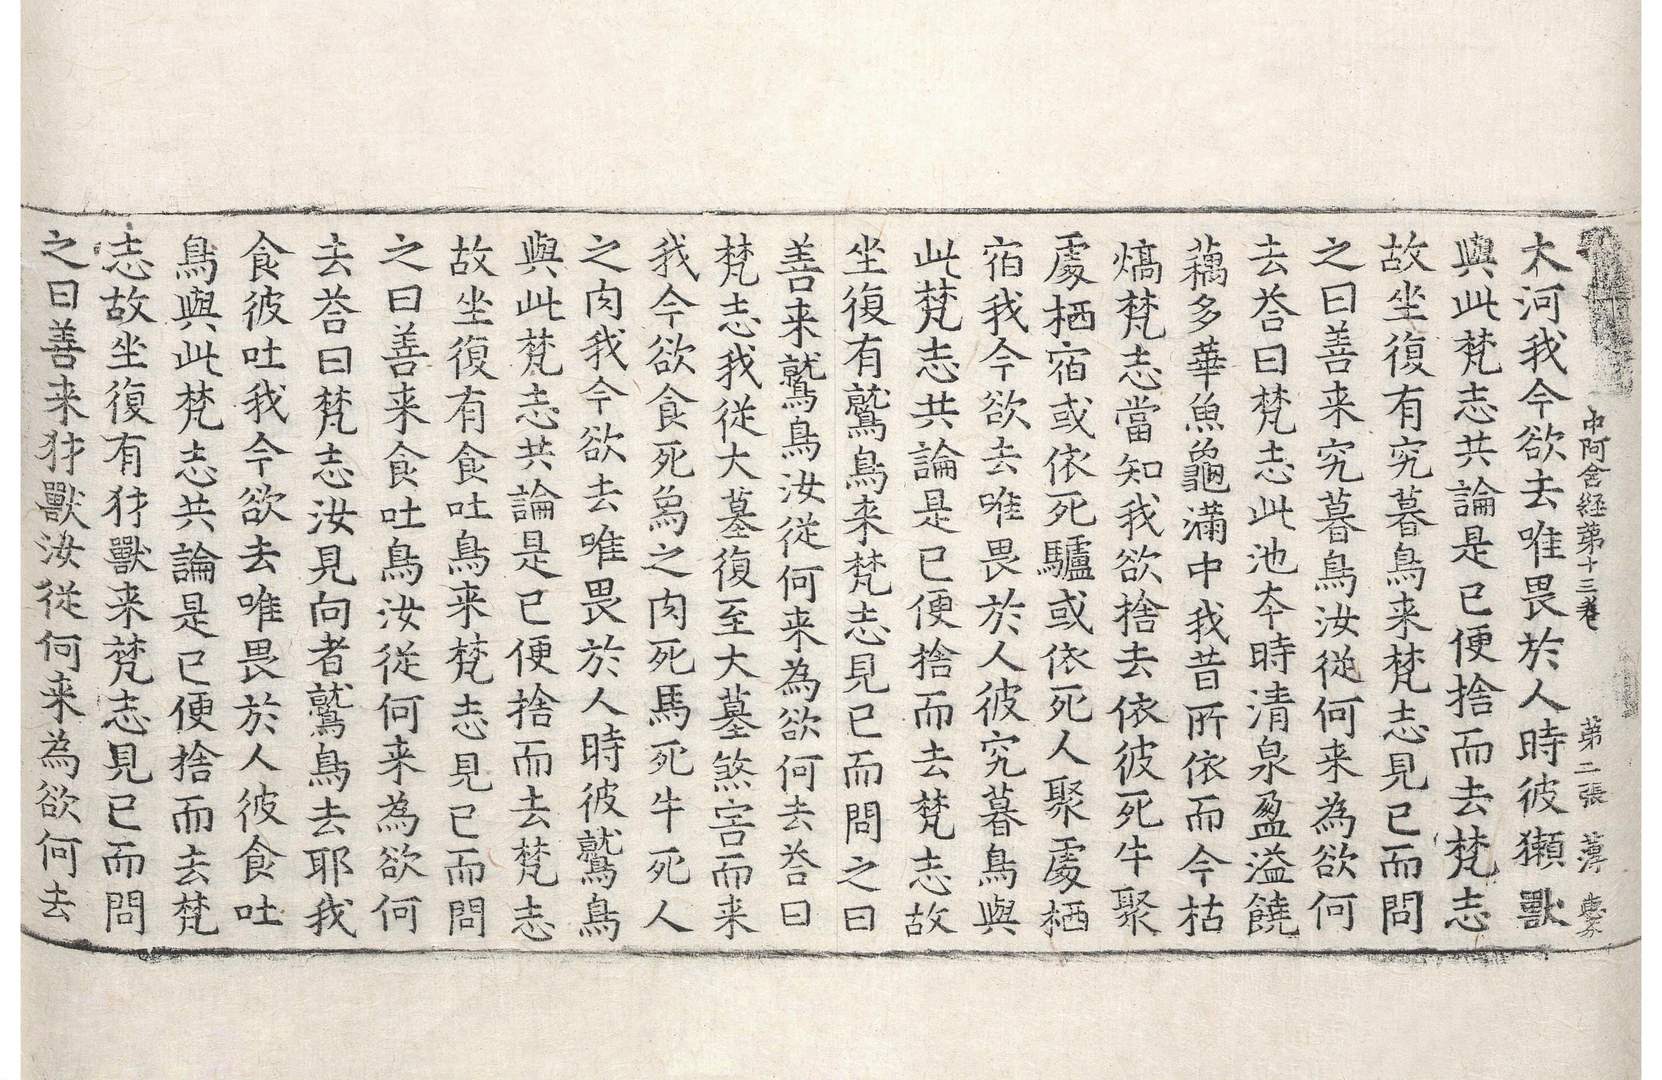 中阿含經第十三卷 第二張 薄
大河我今欲去唯畏於人時彼獺獸
與此梵志共論是已便捨而去梵志
故坐復有究暮鳥来梵志見已而問
之曰善来究暮鳥汝從何来為欲何
去荅曰梵志此池夲時清泉盈溢饒
藕多華魚龜滿中我昔所依而今枯
熇梵志當知我欲捨去依彼死牛聚
處栖宿或依死驢或依死人聚處栖
宿我今欲去唯畏於人彼究暮鳥與
此梵志共論是已便捨而去梵志故
坐復有鷲鳥来梵志見已而問之曰
善来鷲鳥汝從何来為欲何去荅曰
梵志我從大墓復至大墓煞害而来
我今欲食死象之肉死馬死牛死人
之肉我今欲去唯畏於人時彼鷲鳥
與此梵志共論是已便捨而去梵志
故坐復有食吐鳥来梵志見已而問
之曰善来食吐鳥汝從何来為欲何
去荅曰梵志汝見向者鷲鳥去耶我
食彼吐我今欲去唯畏於人彼食吐
鳥與此梵志共論是已便捨而去梵
志故坐復有犲獸来梵志見已而問
之曰善来犲獸汝從何来為欲何去